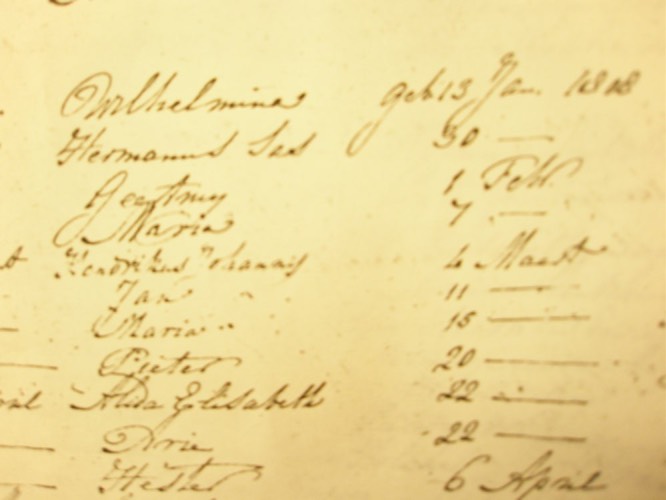 Wilhelmina geb 13 Jan. 1808
Hermanus Sas 30 —
Geertruy 1 Febr.
Maria 7 —
Hendrikus Johannis 4 Maart
Jan 11 —
Maria 15 —
Pieter 20 —
Alida Elisabeth 22 —
Dirie 22 —
Hester 6 April